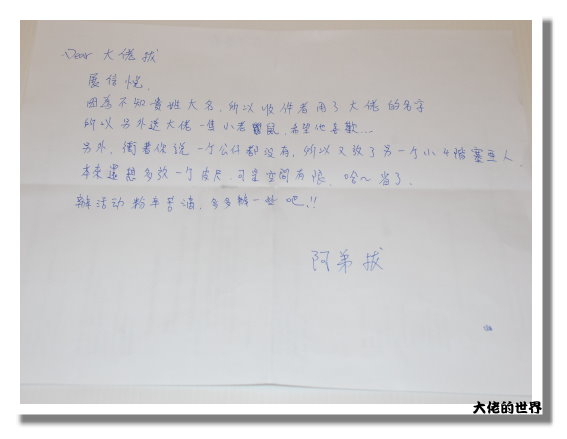 Dear 大佬拔
展信悅,
因為不知貴姓大名,所以收件者用了大佬的名字
所以另外送大佬一隻小老鼠,希望他喜歡...
另外,衝著你說一個公仔都沒有,所以又放了另一個小4階塞亞人.
本來還想多放一個皮尺,可是空間有限,哈~省了.
辦活动粉辛苦滴,多多辦一些吧!!
阿弟拔
大佬的世界